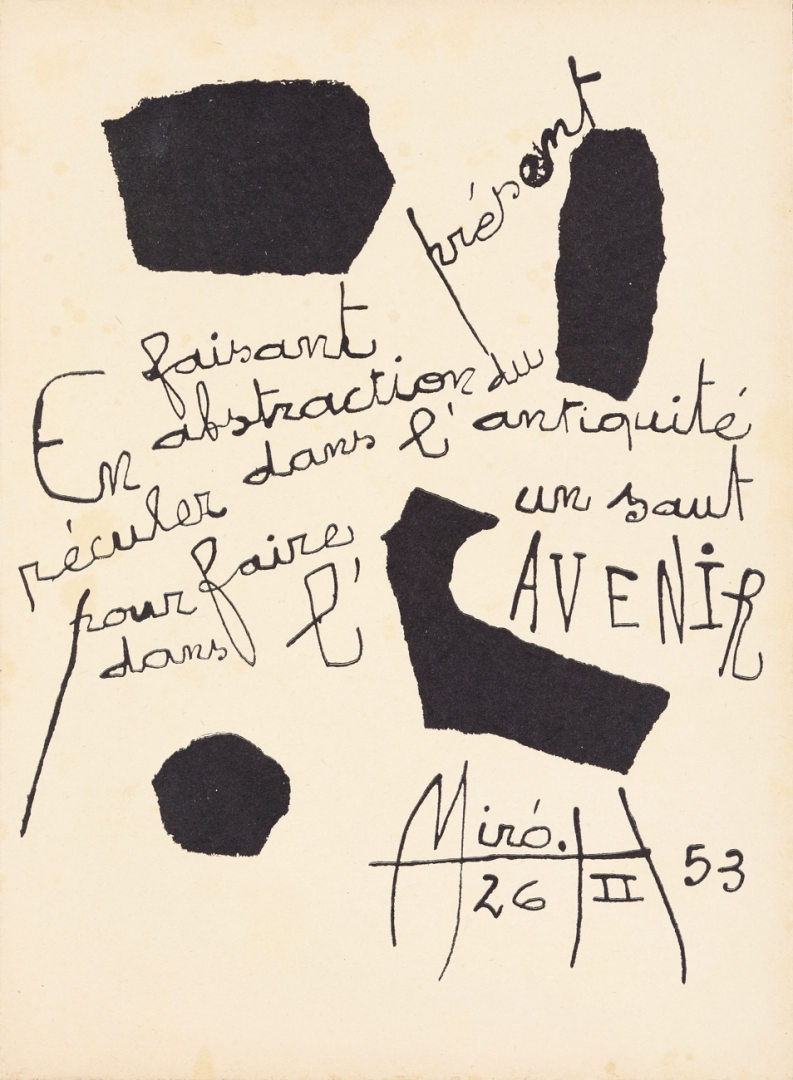 En faisant
abstraction du présent
réculer dans l'antiquité
pour faire un saut
dans l'AVENIR
Miró.
26 II 53